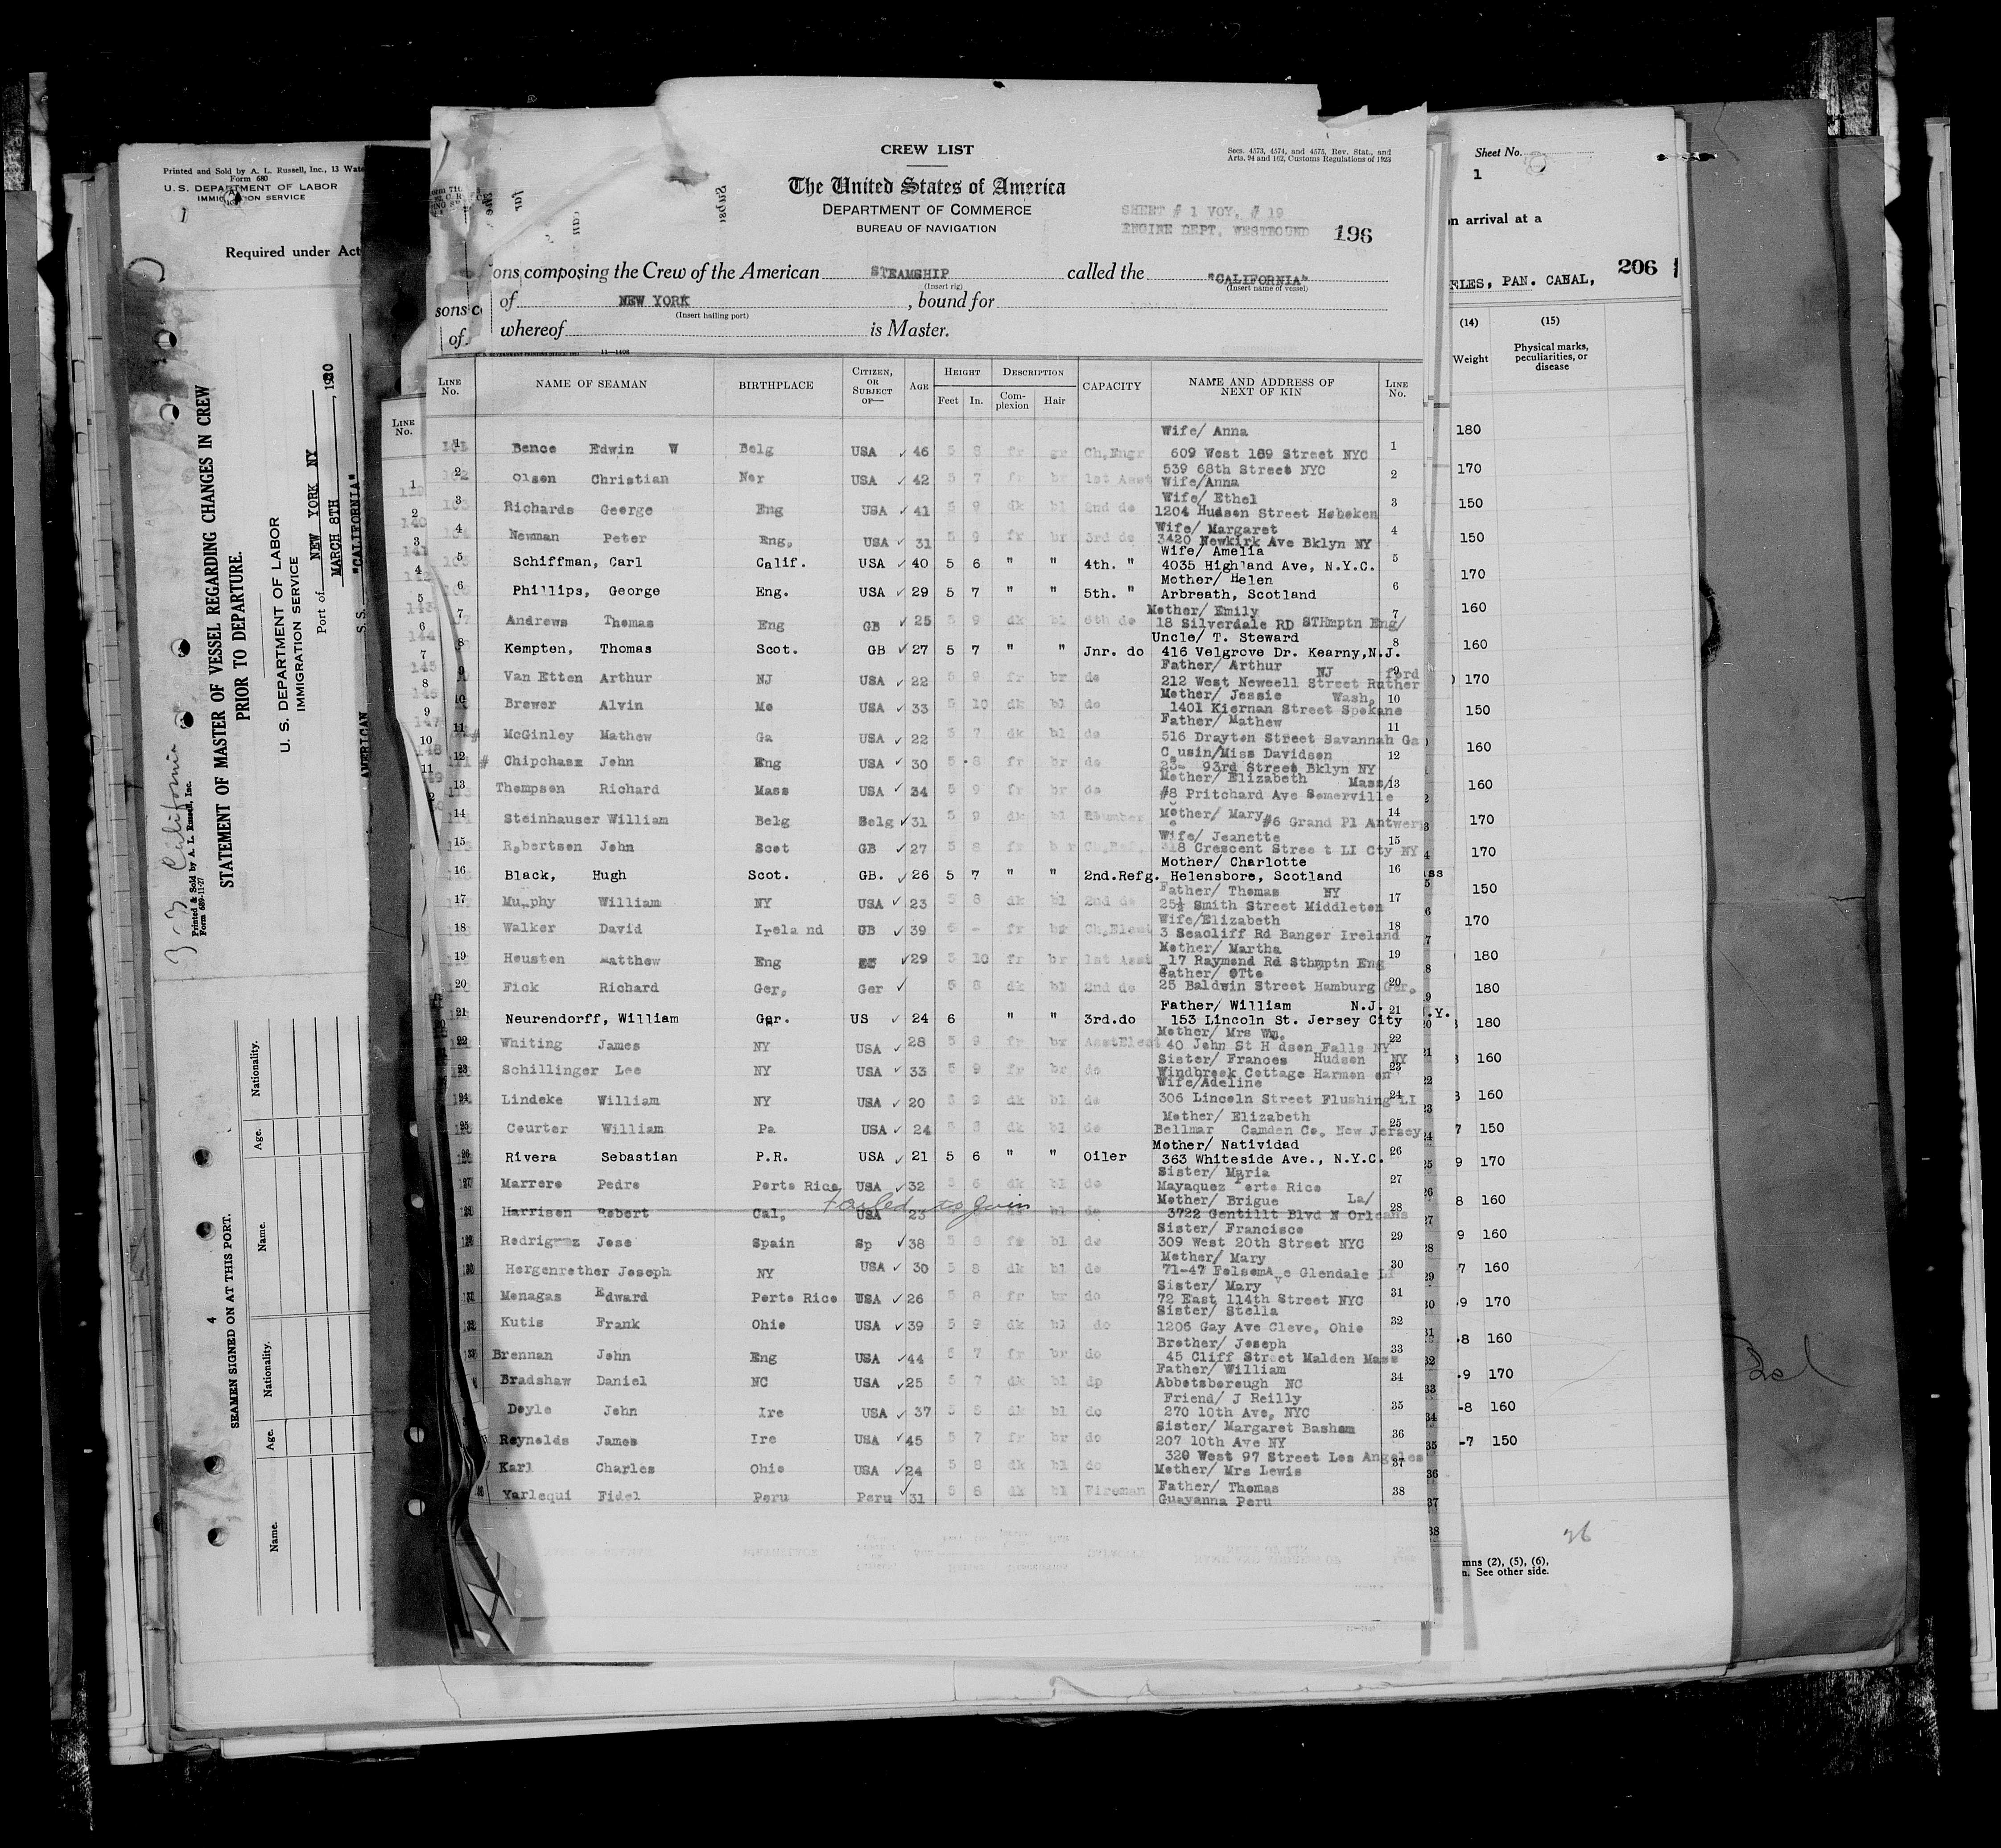 Printed and Sold by A. L. Russell, Inc., 13 Wate
Form 680
U. S. DEPARTMENT OF LABOR
IMMIGRATION SERVICE
Required under Act
3-3 California
Printed & Sold by A. L. Russell, Inc.
Form 689-11-27
STATEMENT OF MASTER OF VESSEL REGARDING CHANGES IN CREW
PRIOR TO DEPARTURE.
U. S. DEPARTMENT OF LABOR
IMMIGRATION SERVICE
Port of NEW YORK NY
MARCH 8TH, 1930
AMERICAN S. S. "CALIFORNIA"
4
SEAMEN SIGNED ON AT THIS PORT.
Name. Age. Nationality. Name. Age. Nationality.
CREW LIST
Secs. 4573, 4574, and 4575, Rev. Stat., and
Arts. 94 and 162, Customs Regulations of 1923
The United States of America
DEPARTMENT OF COMMERCE
BUREAU OF NAVIGATION
SHEET # 1 VOY. # 19
ENGINE DEPT. WESTBOUND 196
ons composing the Crew of the American STEAMSHIP called the "CALIFORNIA"
(Insert rig) (Insert name of vessel)
of NEW YORK, bound for
(Insert hailing port)
whereof is Master.
11-1406
LINE No. NAME OF SEAMAN BIRTHPLACE CITIZEN, OR SUBJECT OF— AGE HEIGHT Feet In. DESCRIPTION Complexion Hair CAPACITY NAME AND ADDRESS OF NEXT OF KIN LINE No.
Wife/ Anna
1 Bence Edwin W Belg USA 46 5 8 fr gr Ch.Engr 609 West 189 Street NYC 1
539 68th Street NYC
2 Olsen Christian Nor USA 42 5 7 fr br 1st Asst Wife/Anna 2
Wife/ Ethel
3 Richards George Eng USA 41 5 9 dk bl 2nd do 1204 Hudson Street Hoboken 3
Wife/ Margaret
4 Newman Peter Eng. USA 31 5 9 fr br 3rd do 3420 Newkirk Ave Bklyn NY 4
Wife/ Amelia
5 Schiffman, Carl Calif. USA 40 5 6 " " 4th. " 4035 Highland Ave, N.Y.C. 5
Mother/ Helen
6 Phillips, George Eng. USA 29 5 7 " " 5th. " Arbreath, Scotland 6
Mother/ Emily
7 Andrews Thomas Eng GB 25 5 9 dk bl 6th do 18 Silverdale RD STHmptn Eng/ 7
Uncle/ T. Steward
8 Kempten, Thomas Scot. GB 27 5 7 " " Jnr. do 416 Velgrove Dr. Kearny,N.J. 8
Father/ Arthur NJ ford
9 Van Etten Arthur NJ USA 22 5 9 fr br do 212 West Neweell Street Ruther 9
Mother/ Jessie Wash.
10 Brewer Alvin Mo USA 33 5 10 dk bl do 1401 Kiernan Street Spokane 10
Father/ Mathew
11 McGinley Mathew Ga USA 22 5 7 dk bl do 516 Drayton Street Savannah Ga 11
Cousin/Miss Davidson
# 12 Chipchase John Eng USA 30 5 8 fr br do 23- 93rd Street Bklyn NY 12
Mother/ Elizabeth Mass/
13 Thompson Richard Mass USA 34 5 9 fr br do #8 Pritchard Ave Somerville 13
14 Steinhauser William Belg Belg 31 5 9 dk bl Plumber Mother/ Mary #6 Grand Pl Antwer 14
Wife/ Jeanette
15 Robertson John Scot GB 27 5 8 fr br Ch.Ref. 318 Crescent Stree t LI Cty NY 15
Mother/ Charlotte
16 Black, Hugh Scot. GB. 26 5 7 " " 2nd.Refg. Helensbore, Scotland 16
Father/ Thomas NY
17 Murphy William NY USA 23 5 8 dk bl 2nd do 25½ Smith Street Middleton 17
Wife/Elizabeth
18 Walker David Irela nd GB 39 6 - fr br Ch.Elect 3 Seacliff Rd Bangor Ireland 18
Mother/ Martha
19 Houston Matthew Eng 29 5 10 fr br 1st Asst 17 Raymond Rd Sthmptn Eng 19
Father/ OTto
20 Fick Richard Ger. Ger 5 8 dk bl 2nd do 25 Baldwin Street Hamburg Ger. 20
Father/ William N.J.
21 Neurendorff, William Ger. US 24 6 " " 3rd.do 153 Lincoln St. Jersey City 21
Mother/ Mrs Wm.
22 Whiting James NY USA 28 5 9 fr br AsstElect 40 John St H dson Falls NY 22
Sister/ Frances Hudson NY
23 Schillinger Leo NY USA 33 5 9 fr br do Windbreek Cottage Harmon on 23
Wife/Adeline
24 Lindeke William NY USA 20 5 9 dk bl do 306 Lincoln Street Flushing LI 24
Mother/ Elizabeth
25 Courter William Pa USA 24 5 8 dk bl do Bellmar Camden Co. New Jersey 25
Mother/ Natividad
26 Rivera Sebastian P.R. USA 21 5 6 " " Oiler 363 Whiteside Ave., N.Y.C. 26
Sister/ Maria
27 Marrero Pedro Porto Rico USA 32 5 6 dk bl do Mayaquez Porto Rico 27
Failed to join
Mother/ Brigue La/
28 Harrison Robert Cal, USA 23 bl do 3722 Gentillt Blvd N Orleans 28
Sister/ Francisco
29 Rodriguez Jose Spain Sp 38 5 8 fr bl do 309 West 20th Street NYC 29
Mother/ Mary
30 Hergenrether Joseph NY USA 30 5 8 dk bl do 71-47 FolsomAve Glendale LI 30
Sister/ Mary
31 Menagas Edward Porto Rico USA 26 5 8 fr br do 72 East 114th Street NYC 31
Sister/ Stella
32 Kutis Frank Ohio USA 39 5 9 dk bl do 1206 Gay Ave Cleve, Ohio 32
Brother/ Joseph
33 Brennan John Eng USA 44 5 7 fr br do 45 Cliff Street Malden Mass 33
Father/ William
Bradshaw Daniel NC USA 25 5 7 dk bl dp Abbotsborough NC 34
Friend/ J Reilly
Doyle John Ire USA 37 5 8 dk bl do 270 10th Ave, NYC 35
Sister/ Margaret Basham
Reynolds James Ire USA 45 5 7 fr br do 207 10th Ave NY 36
320 West 97 Street Los Angeles
Karl Charles Ohio USA 24 5 8 dk bl do Mother/ Mrs Lewis 37
Father/ Thomas
Yarlequi Fidel Peru Peru 31 5 8 dk bl Fireman Guayanna Peru 38
Sheet No.
1
n arrival at a
206
PAN. CANAL,
(14) (15)
Weight Physical marks, peculiarities, or disease
180
170
150
150
170
160
160
170
150
160
160
170
170
150
170
180
180
180
160
160
150
170
160
160
160
170
160
170
160
150
26
mns (2), (5), (6),
n. See other side.